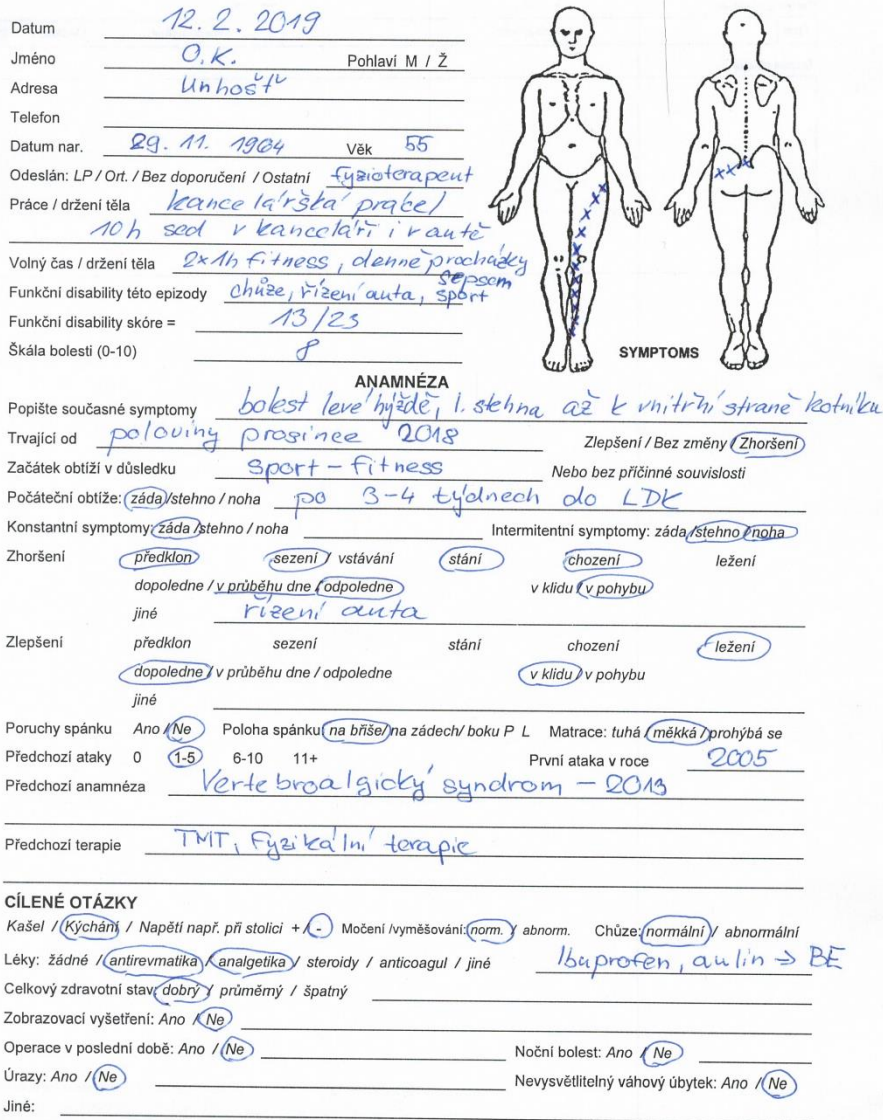 Datum 12. 2. 2019
Jméno O.K. Pohlaví M / Ž
Adresa Unhošť
Telefon
Datum nar. 29. 11. 1964 Věk 55
Odeslán: LP / Ort. / Bez doporučení / Ostatní fyzioterapeut
Práce / držení těla kancelářská práce /
10h sed v kanceláři i v autě
Volný čas / držení těla 2x1h fitness, denně procházky
se psem
Funkční disability této epizody chůze, řízení auta, sport
Funkční disability skóre = 13/23
Škála bolesti (0-10) 8
SYMPTOMS
ANAMNÉZA
Popište současné symptomy bolest levé hýždě, l. stehna až k vnitřní straně kotníku
Trvající od poloviny prosince 2018 Zlepšení / Bez změny / Zhoršení
Začátek obtíží v důsledku sport - fitness Nebo bez příčinné souvislosti
Počáteční obtíže: záda /stehno / noha po 3-4 týdnech do LDK
Konstantní symptomy: záda /stehno / noha Intermitentní symptomy: záda /stehno /noha
Zhoršení předklon sezení / vstávání stání chození ležení
dopoledne / v průběhu dne / odpoledne v klidu / v pohybu
jiné řízení auta
Zlepšení předklon sezení stání chození ležení
dopoledne / v průběhu dne / odpoledne v klidu / v pohybu
jiné
Poruchy spánku Ano / Ne Poloha spánku: na břiše/ na zádech/ boku P L Matrace: tuhá / měkká / prohýbá se
Předchozí ataky 0 1-5 6-10 11+ První ataka v roce 2005
Předchozí anamnéza Vertebroalgický syndrom - 2013
Předchozí terapie TMT, Fyzikální terapie
CÍLENÉ OTÁZKY
Kašel / Kýchání / Napětí např. při stolici + / - Močení /vyměšování: norm. / abnorm. Chůze: normální / abnormální
Léky: žádné / antirevmatika / analgetika / steroidy / anticoagul / jiné Ibuprofen, aulin → BE
Celkový zdravotní stav: dobrý / průměrný / špatný
Zobrazovací vyšetření: Ano / Ne
Operace v poslední době: Ano / Ne Noční bolest: Ano / Ne
Úrazy: Ano / Ne Nevysvětlitelný váhový úbytek: Ano / Ne
Jiné: